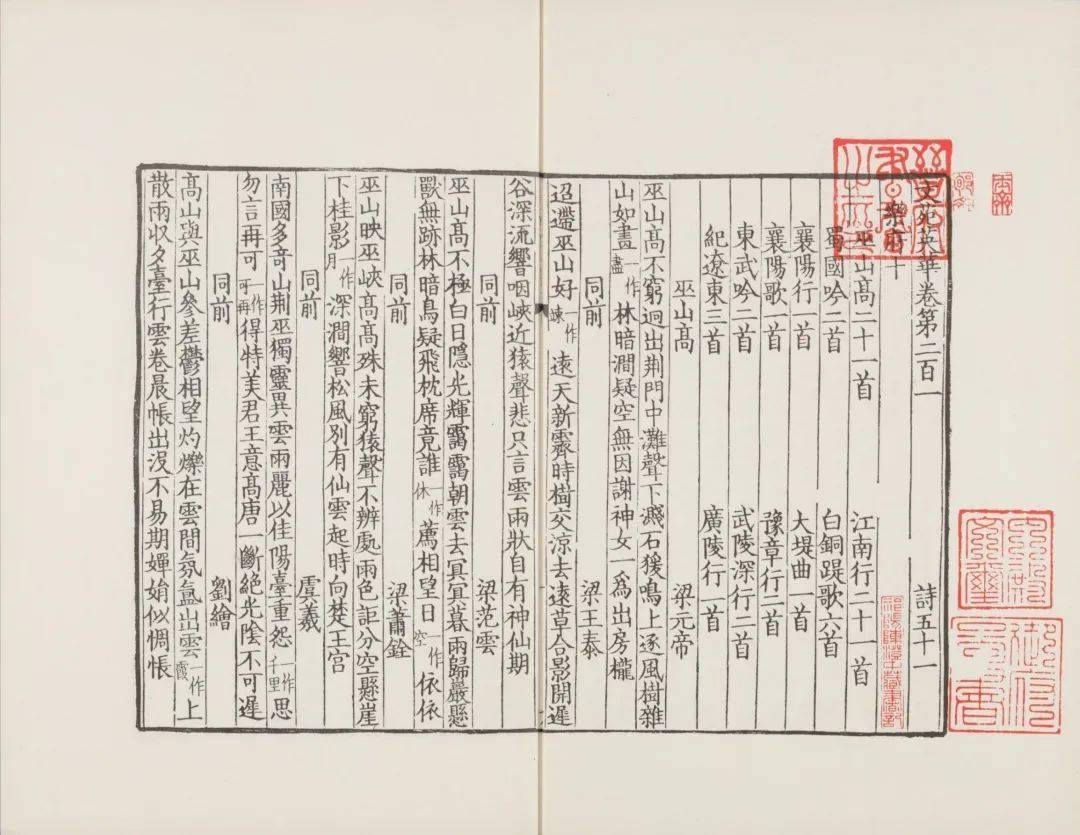 文苑英華卷第二百一 詩五十一
樂府十
巫山高二十一首 江南行二十一首
蜀國吟二首 白銅鍉歌六首
襄陽行一首 大堤曲一首
襄陽歌一首 豫章行二首
東武吟二首 武陵深行二首
紀遼東三首 廣陵行一首
巫山高 梁元帝
巫山高不窮迴出荆門中灘聲下濺石猨鳴上逐風樹雜
山如畫一作盡林暗澗疑空無因謝神女一爲出房櫳
同前 梁王泰
迢遰巫山好一作竦遠天新霽時樯交凉去遠草合影開遲
谷深流響咽峽近猿聲悲只言雲雨狀自有神仙期
同前 梁范雲
巫山高不極白日隱光輝靄靄朝雲去冥冥暮雨歸巖懸
獸無跡林暗鳥疑飛枕席竟誰一作休薦相望日一作空依依
同前 梁蕭銓
巫山映巫峽高高殊未窮猿聲不辨處雨色詎分空懸崖
下桂影一作月深澗響松風別有仙雲起時向楚王宫
同前 虞羲
南國多奇山荆巫獨靈異雲雨麗以佳陽臺重怨一作千里思
勿言再可一作可再得特美君王意高唐一斷絕光陰不可遲
同前 劉繪
高山與巫山參差鬱相望灼爍在雲間氛氳出雲一作霞上
散雨収夕臺行雲卷晨帳出没不易期嬋娟似惆悵